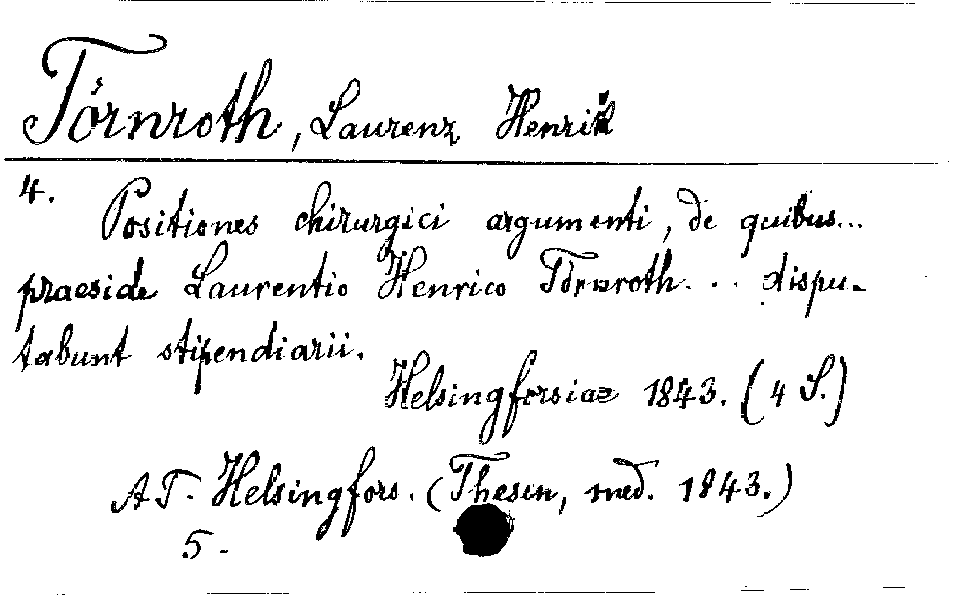 Törnroth, Laurenz Henrik
4. Positiones chirurgici argumenti, de quibus...
praeside Laurentio Henrico Törnroth... dispu-
tabunt stipendiarii.
Helsingforsiae 1843. (4 S.)
AT. Helsingfors. (Thesen, med. 1843.)
5.